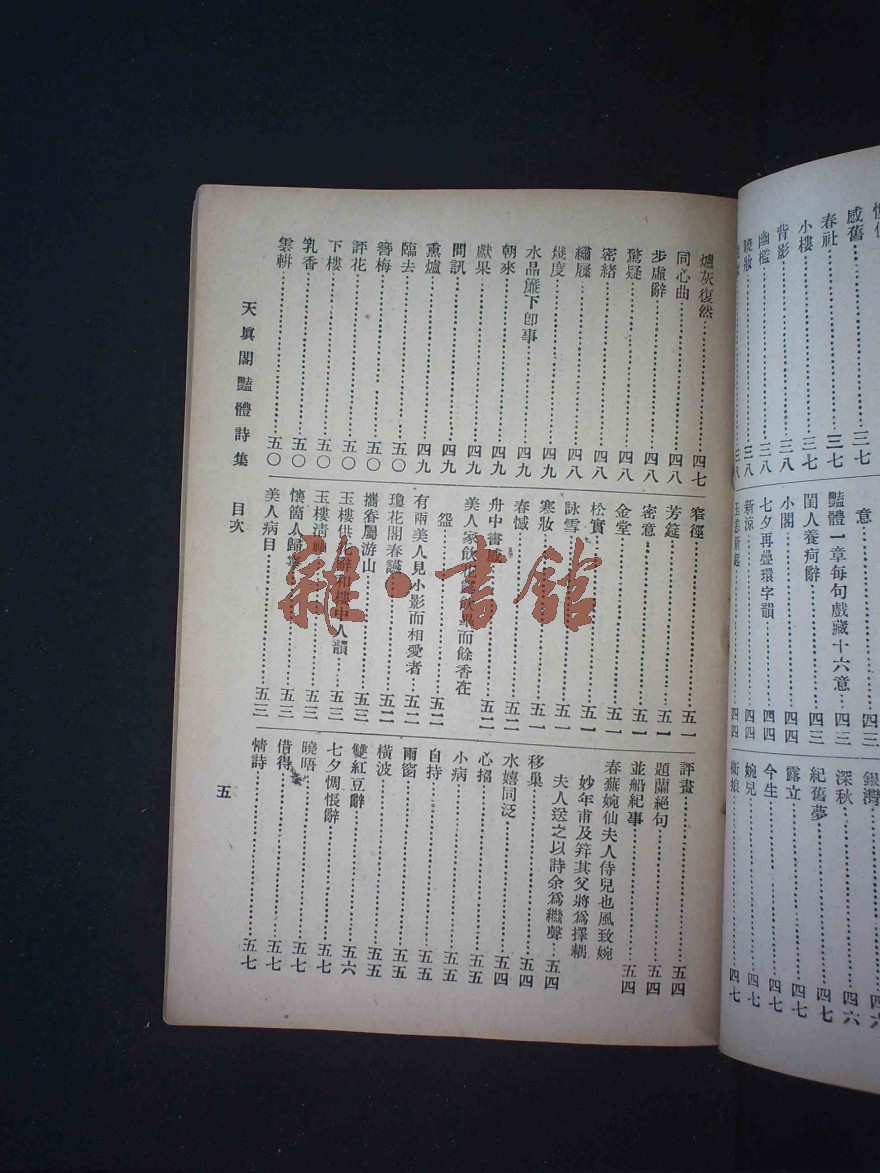 感舊
春社
三七
小樓
三七
背影
三八
幽檻
三八
曉妝
三八
意
四三
豔體一章每句戲藏十六意
四三
閨人養疴辭
四三
小閣
四四
七夕再疊環字韻
四四
新涼
四四
銀灣
四六
深秋
四六
紀舊夢
四七
露立
四七
今生
四七
婉兒
四七
四七
爐灰復然 四七
同心曲 四八
步虛辭 四八
驚疑 四八
密緒 四八
繡屨 四八
幾度 四九
水晶簾下卽事 四九
朝來 四九
獻果 四九
問訊 四九
熏爐 四九
臨去 五〇
簪梅 五〇
評花 五〇
下樓 五〇
乳香 五〇
雲輧 五〇
窄徑 五一
芳筵 五一
密意 五一
金堂 五一
松實 五一
詠雪 五一
寒妝 五一
春憾 五二
舟中書感 五二
美人家飲 而餘香在
盌 五二
有兩美人見小影而相愛者 五二
瓊花閣春讌 五二
攜眷屬游山 五三
玉樓供花辭和樓中人韻 五三
玉樓清 五三
懷箇人歸寧 五三
美人病目 五三
評畫 五四
題蘭絕句 五四
並船紀事 五四
春蕪婉仙夫人侍兒也風致婉
妙年甫及笄其父將爲擇耦
夫人送之以詩余爲繼聲 五四
移巢 五四
水嬉同泛 五四
心招 五五
小病 五五
自持 五五
雨窗 五五
橫波 五五
雙紅豆辭 五六
七夕惆悵辭 五七
曉晤 五七
借得 五七
情詩 五七
天眞閣豔體詩集 目次
五
雜·書館